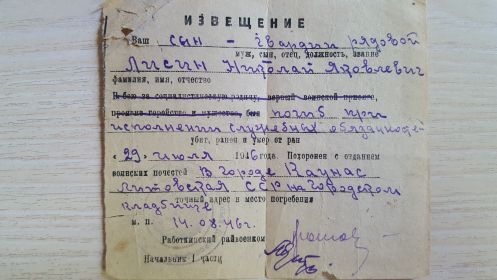 ИЗВЕЩЕНИЕ
Ваш сын – гвардии рядовой
муж, сын, отец, должность, звание
Лисин Николай Яковлевич
фамилия, имя, отчество
В бою за социалистическую родину, верный воинской присяге,
проявив геройство и мужество, был погиб при
исполнении служебных обязанностей
убит, ранен и умер от ран
„29" июля 1946 года. Похоронен с отданием
воинских почестей В городе Каунас
Литовская ССР на городском
кладбище
точный адрес и место погребения
м. п. 14.08.46г.
Работкинский райвоенком
Начальник 1 части